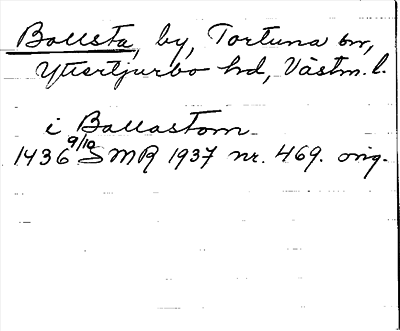 Ballsta, by, Tortuna sn,
Yttertjurbo hd, Västm. l.
i Ballastom
1436 9/10 SMR 1937 nr. 469. orig.